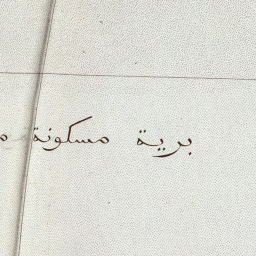 برية مسكونة